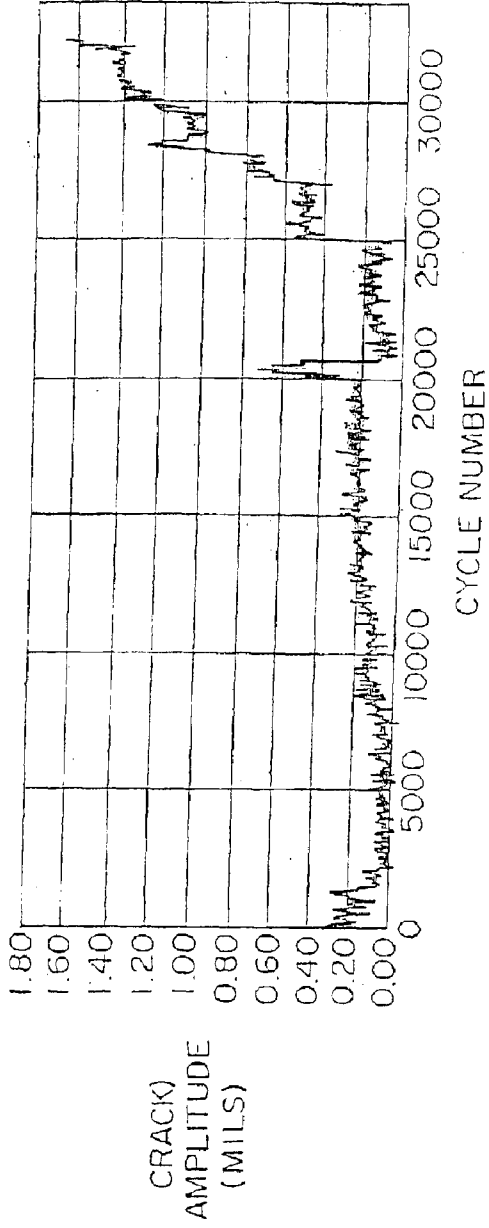 CRACK)
AMPLITUDE
(MILS)
1.80
1.60
1.40
1.20
1.00
0.80
0.60
0.40
0.20
0.00
0
5000
10000
15000
20000
25000
30000
CYCLE NUMBER